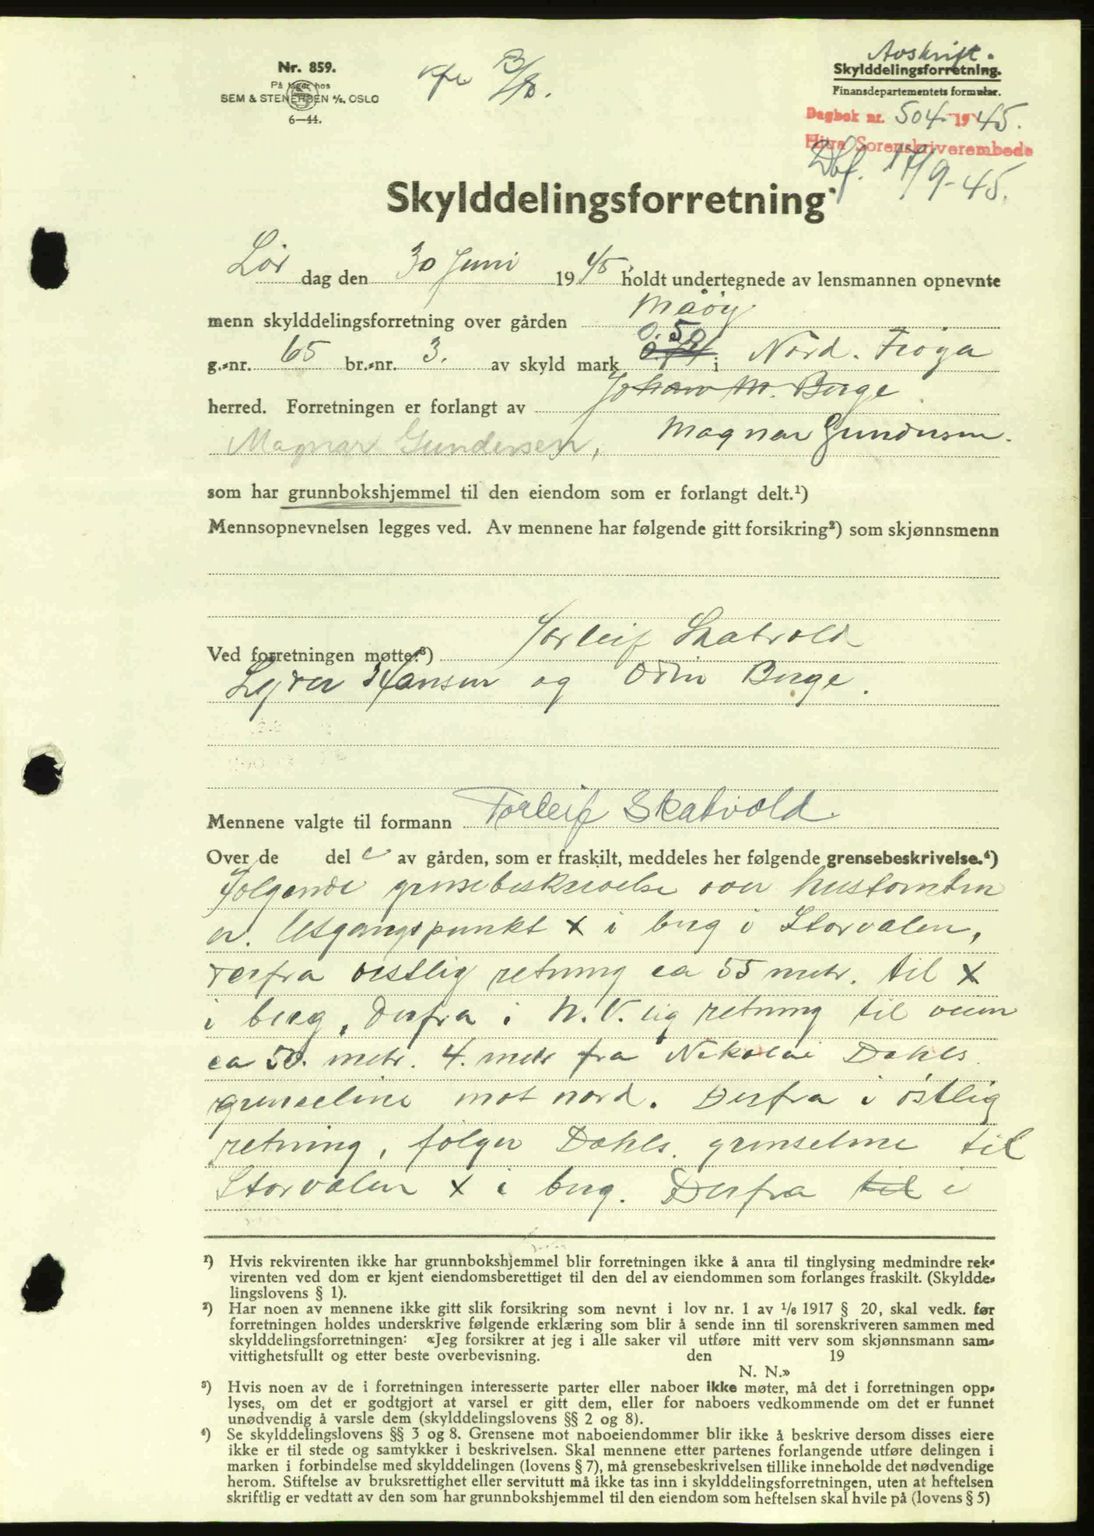 Nr. 859.
På lager hos
SEM & STENERSEN A/S, OSLO
6—44.
Avskrift.
Skylddelingsforretning.
Finansdepartementets formular.
Dagbok nr. 504-1945.
Hitra Sorenskriverembede
Dbf. 17/9-45.
Skylddelingsforretning
Lør dag den 30 Juni 1945 holdt undertegnede av lensmannen opnevnte
menn skylddelingsforretning over gården Måøy
0.50
g.-nr. 65 br.-nr. 3. av skyld mark i Nord. Frøya
herred. Forretningen er forlangt av Johan M. Berge
Magnar Gundersen, Magnar Gundersen.
som har grunnbokshjemmel til den eiendom som er forlangt delt.¹)
Mennsopnevnelsen legges ved. Av mennene har følgende gitt forsikring²) som skjønnsmenn
Ved forretningen møtte:³) Torleif Skatvold
Hansen og Odin Berge.
Mennene valgte til formann Torleif Skatvold.
Over de del e av gården, som er fraskilt, meddeles her følgende grensebeskrivelse.⁴)
Følgende grensebeskrivelse over hustomten
er. Utgangspunkt x i berg i Storvalen,
derfra vestlig retning ca 55 metr. til x
i berg, Derfra i N.V.lig retning til veien
ca 50. metr. 4. metr fra Nikolai Dahls
grenseline mot nord. Derfra i østlig
retning, følger Dahls. grenseline til
Storvalen x i berg. Derfra til i
¹) Hvis rekvirenten ikke har grunnbokshjemmel blir forretningen ikke å anta til tinglysing medmindre rek-
virenten ved dom er kjent eiendomsberettiget til den del av eiendommen som forlanges fraskilt. (Skyldde-
lingslovens § 1).
²) Har noen av mennene ikke gitt slik forsikring som nevnt i lov nr. 1 av 1/6 1917 § 20, skal vedk. før
forretningen holdes underskrive følgende erklæring som blir å sende inn til sorenskriveren sammen med
skylddelingsforretningen: «Jeg forsikrer at jeg i alle saker vil utføre mitt verv som skjønnsmann sam-
vittighetsfullt og etter beste overbevisning. den 19
N. N.»
³) Hvis noen av de i forretningen interesserte parter eller naboer ikke møter, må det i forretningen opp-
lyses, om det er godtgjort at varsel er gitt dem, eller for naboers vedkommende om det er funnet
unødvendig å varsle dem (skylddelingslovens §§ 2 og 8).
⁴) Se skylddelingslovens §§ 3 og 8. Grensene mot naboeiendommer blir ikke å beskrive dersom disses eiere
ikke er til stede og samtykker i beskrivelsen. Skal mennene etter partenes forlangende utføre delingen i
marken i forbindelse med skylddelingen (lovens § 7), må grensebeskrivelsen tillike inneholde det nødvendige
herom. Stiftelse av bruksrettighet eller servitutt må ikke tas inn i skylddelingsforretningen, uten at heftelsen
skriftlig er vedtatt av den som har grunnbokshjemmel til den eiendom som heftelsen skal hvile på (lovens § 5)